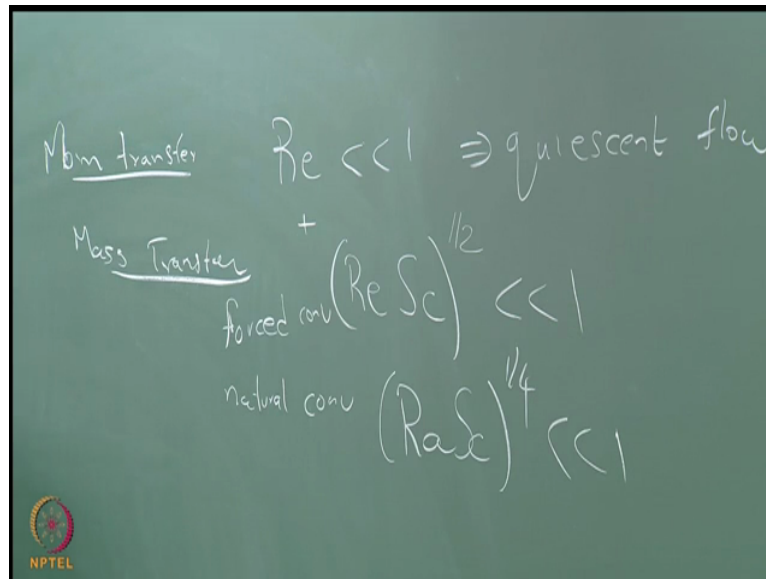 Mom transfer Re <<1 ⇒ quiescent flow
+
Mass Transfer
forced conv (Re Sc)^1/2 <<1
natural conv (Ra Sc)^1/4 <<1
NPTEL